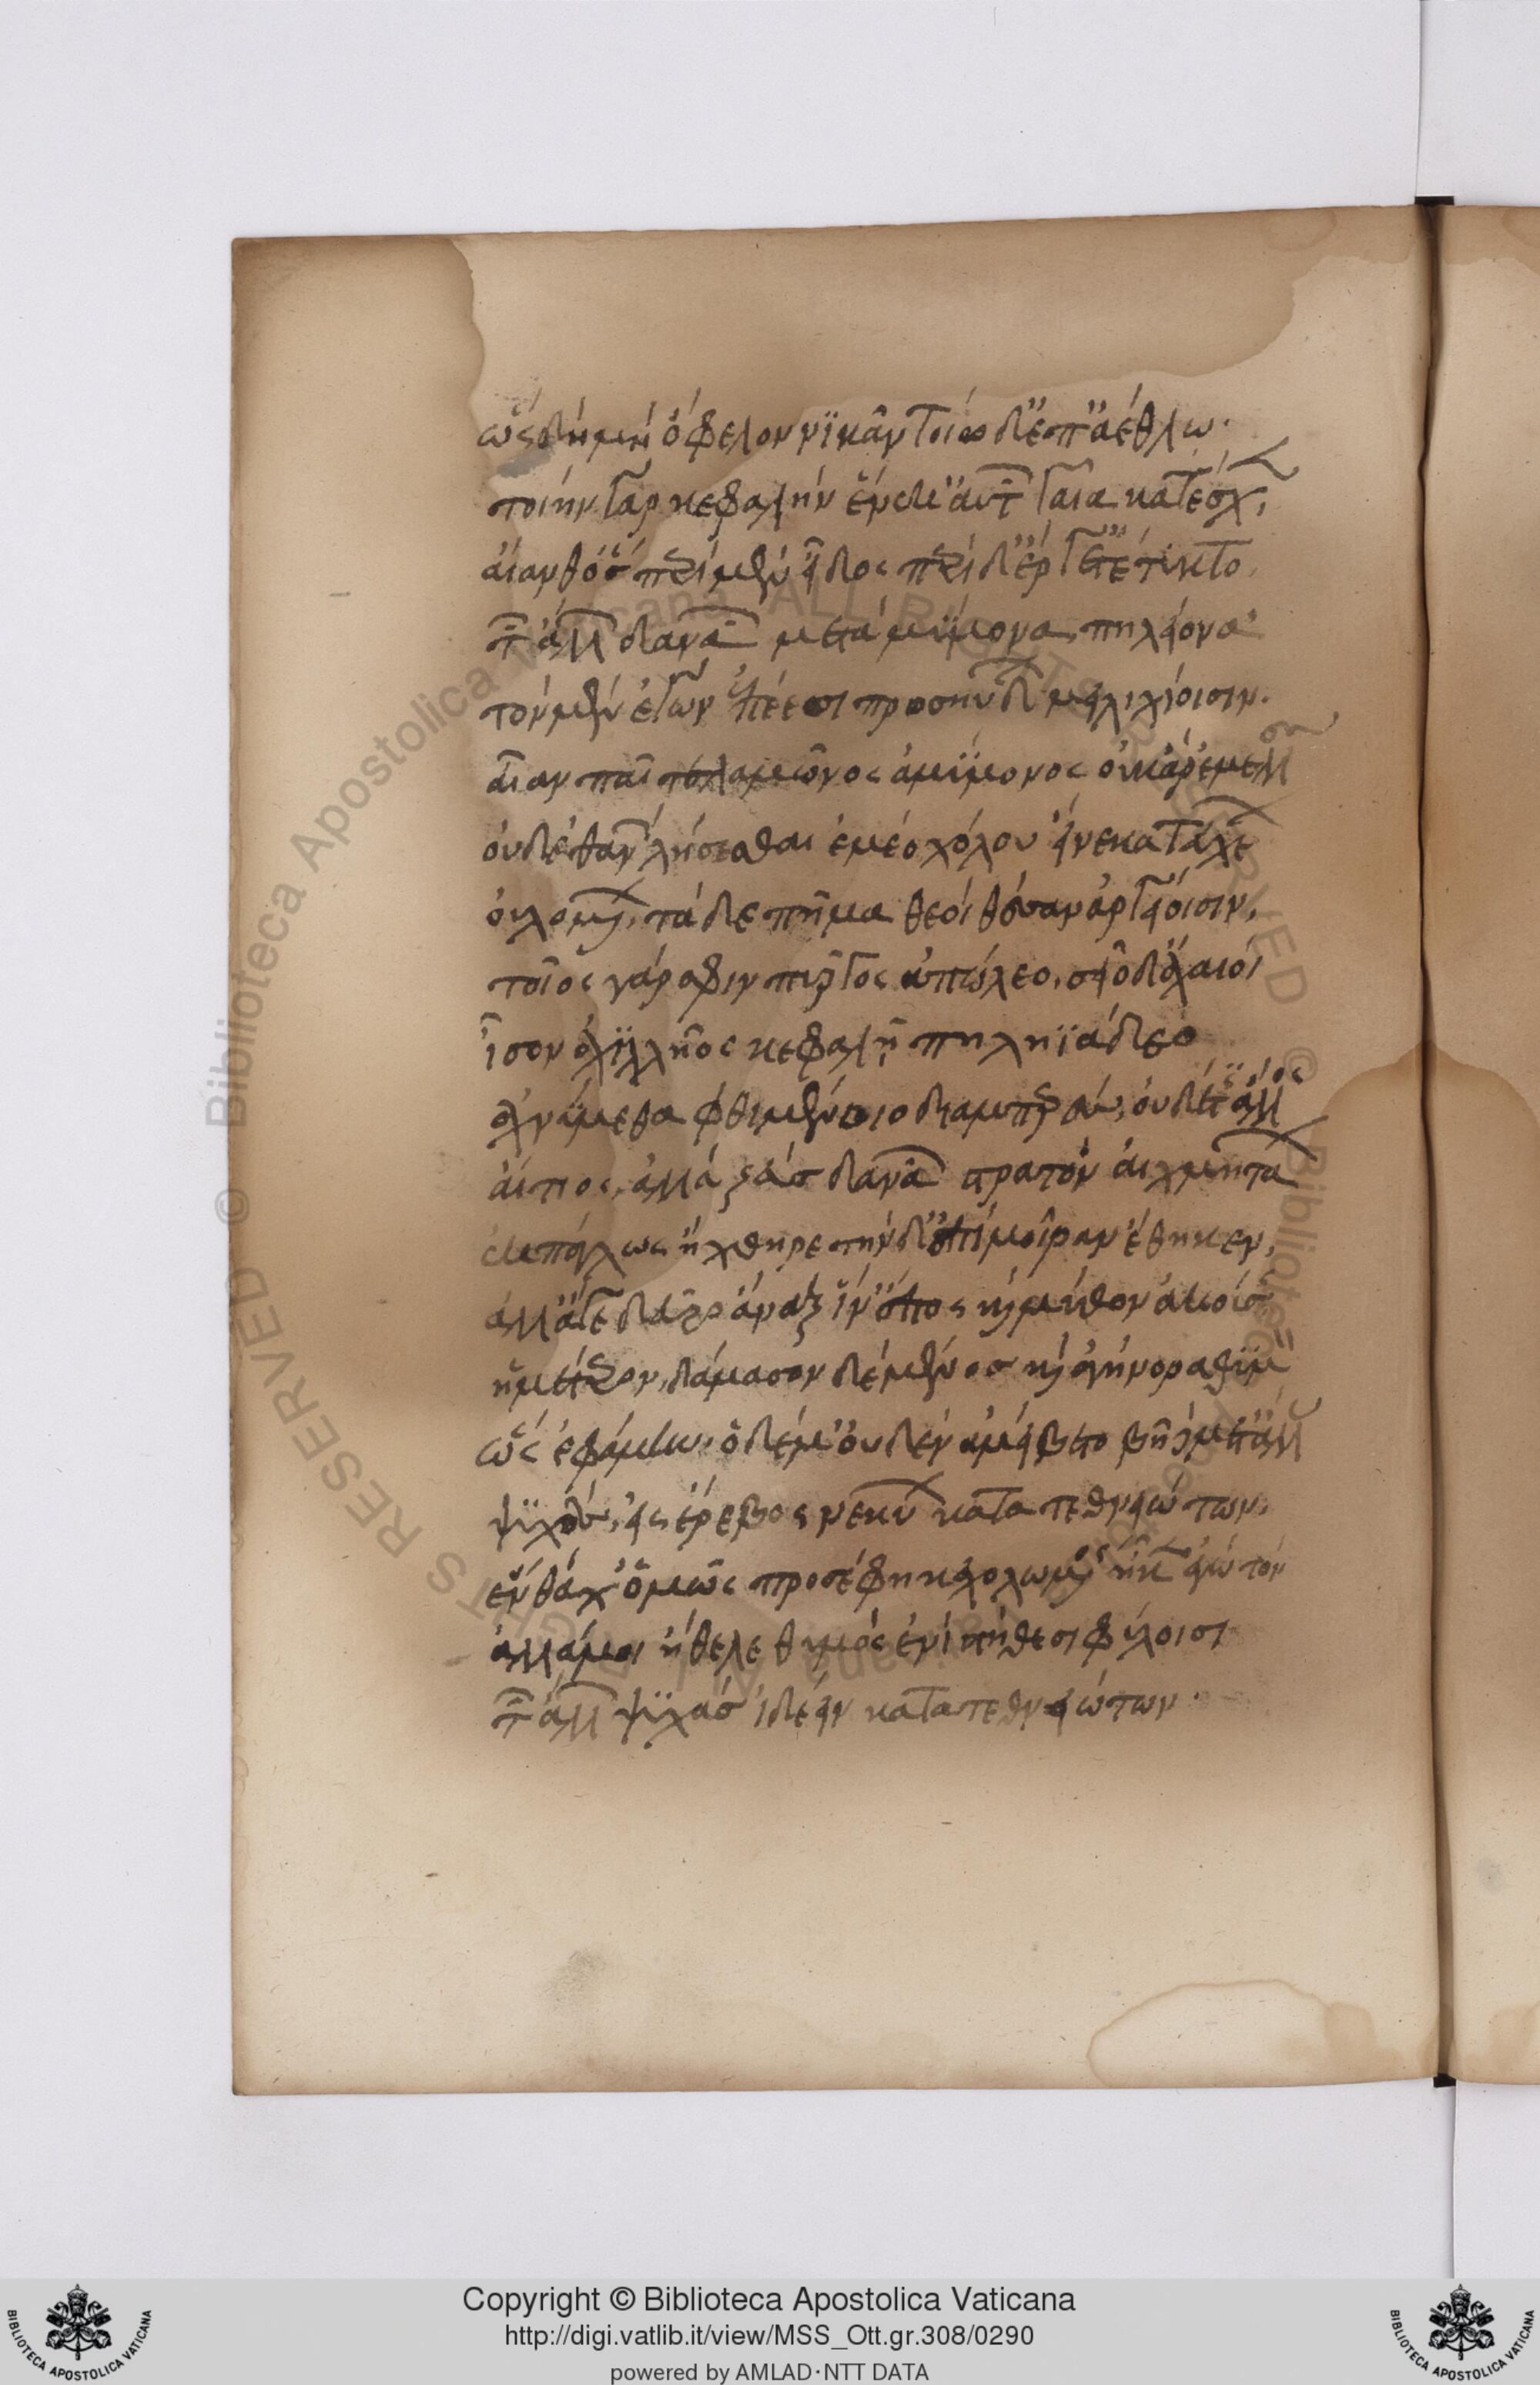 ὡς δὴ μὴ ὄφελον νικᾶν τοιῶδ' ἐπ' ἀέθλω·
τοίην γὰρ κεφαλὴν ἕνεκ' αὐτῶν γαῖα κατέσχεν
αἴανθ' ὃς περὶ μὲν εἶδος περὶ δ' ἔργα τέτυκτο
τῶν ἄλλων δαναῶν μετ' ἀμύμονα πηλείονα·
τὸν μὲν ἐγὼν ἐπέεσσι προσηύδων μειλιχίοισιν.
αἶαν παῖ τελαμῶνος ἀμύμονος οὐκ ἄρ' ἔμελλες
οὐδὲ θανὼν λήσεσθαι ἐμέο χόλου εἵνεκα τευχέων
οὐλομένων, τὰ δὲ πῆμα θεοὶ θέσαν ἀργείοισιν,
τοῖος γάρ σφιν πύργος ἀπώλεο, σεῖο δ' ἀχαιοὶ
ἶσον ἀχιλλῆος κεφαλῇ πηληϊάδεω
ἀχνύμεθα φθιμένοιο διαμπερές, οὐδέ τις ἄλλος
αἴτιος, ἀλλὰ ζεὺς δαναῶν στρατὸν αἰχμητάων
ἐκπάγλως ἤχθηρε τεῒν δ' ἐπὶ μοῖραν ἔθηκεν,
ἀλλ' ἄγε δεῦρο ἄναξ ἵν' ἔπος καὶ μῦθον ἀκούσῃς
ἡμέτερον, δάμασον δὲ μένος καὶ ἀγήνορα θυμόν
ὣς ἐφάμην, ὁ δέ μ' οὐδὲν ἀμείβετο βῆ δὲ μετ' ἄλλας
ψυχὰς, εἰς ἔρεβος νεκύων κατατεθνειώτων,
ἔνθά χ' ὅμως προσέφη κεχολωμένος ἤ κεν ἐγὼ τὸν
ἀλλά μοι ἤθελε θυμὸς ἐνὶ στήθεσι φίλοισι
τῶν ἄλλων ψυχὰς ἰδέειν κατατεθνειώτων·
Copyright © Biblioteca Apostolica Vaticana
http://digi.vatlib.it/view/MSS_Ott.gr.308/0290
powered by AMLAD·NTT DATA